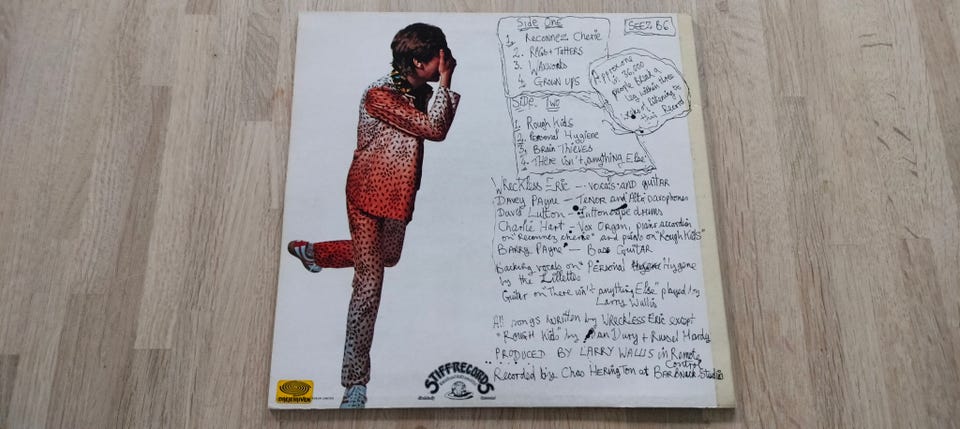 Side One
1. Reconnez Cherie
2. RAGS + TATTERS
3. Waxworks
4. GROWN UPS
SEEZ B6
Approx one
in 36,000
people break a
leg within three
of listening to
this Record
SIDE TWO
1. Rough Kids
2. Personal Hygiene
3. BRAIN THIEVES
4. THERE isn't anything ELSE
WRECKLESS ERIC — vocals and guitar
DAVEY PAYNE — TENOR and Alto saxophones
David Lutton — drums
Charlie Hart - Vox Organ, piano accordion
on "Reconnez cherie" and piano on "Rough Kids"
BARRY PAYNE — Bass GUITAR
Backing vocals on "PERSONAL Hygene
by the Lillettes
Guitar on "There isn't anything Else" played by
Larry Wallis
All songs written by WRECKLESS ERIC except
"ROUGH Kids" by Ian Dury + Russel Hardy
PRODUCED BY LARRY WALLIS in Remote
Control
Recorded by Chas Herington at
STIFF RECORDS